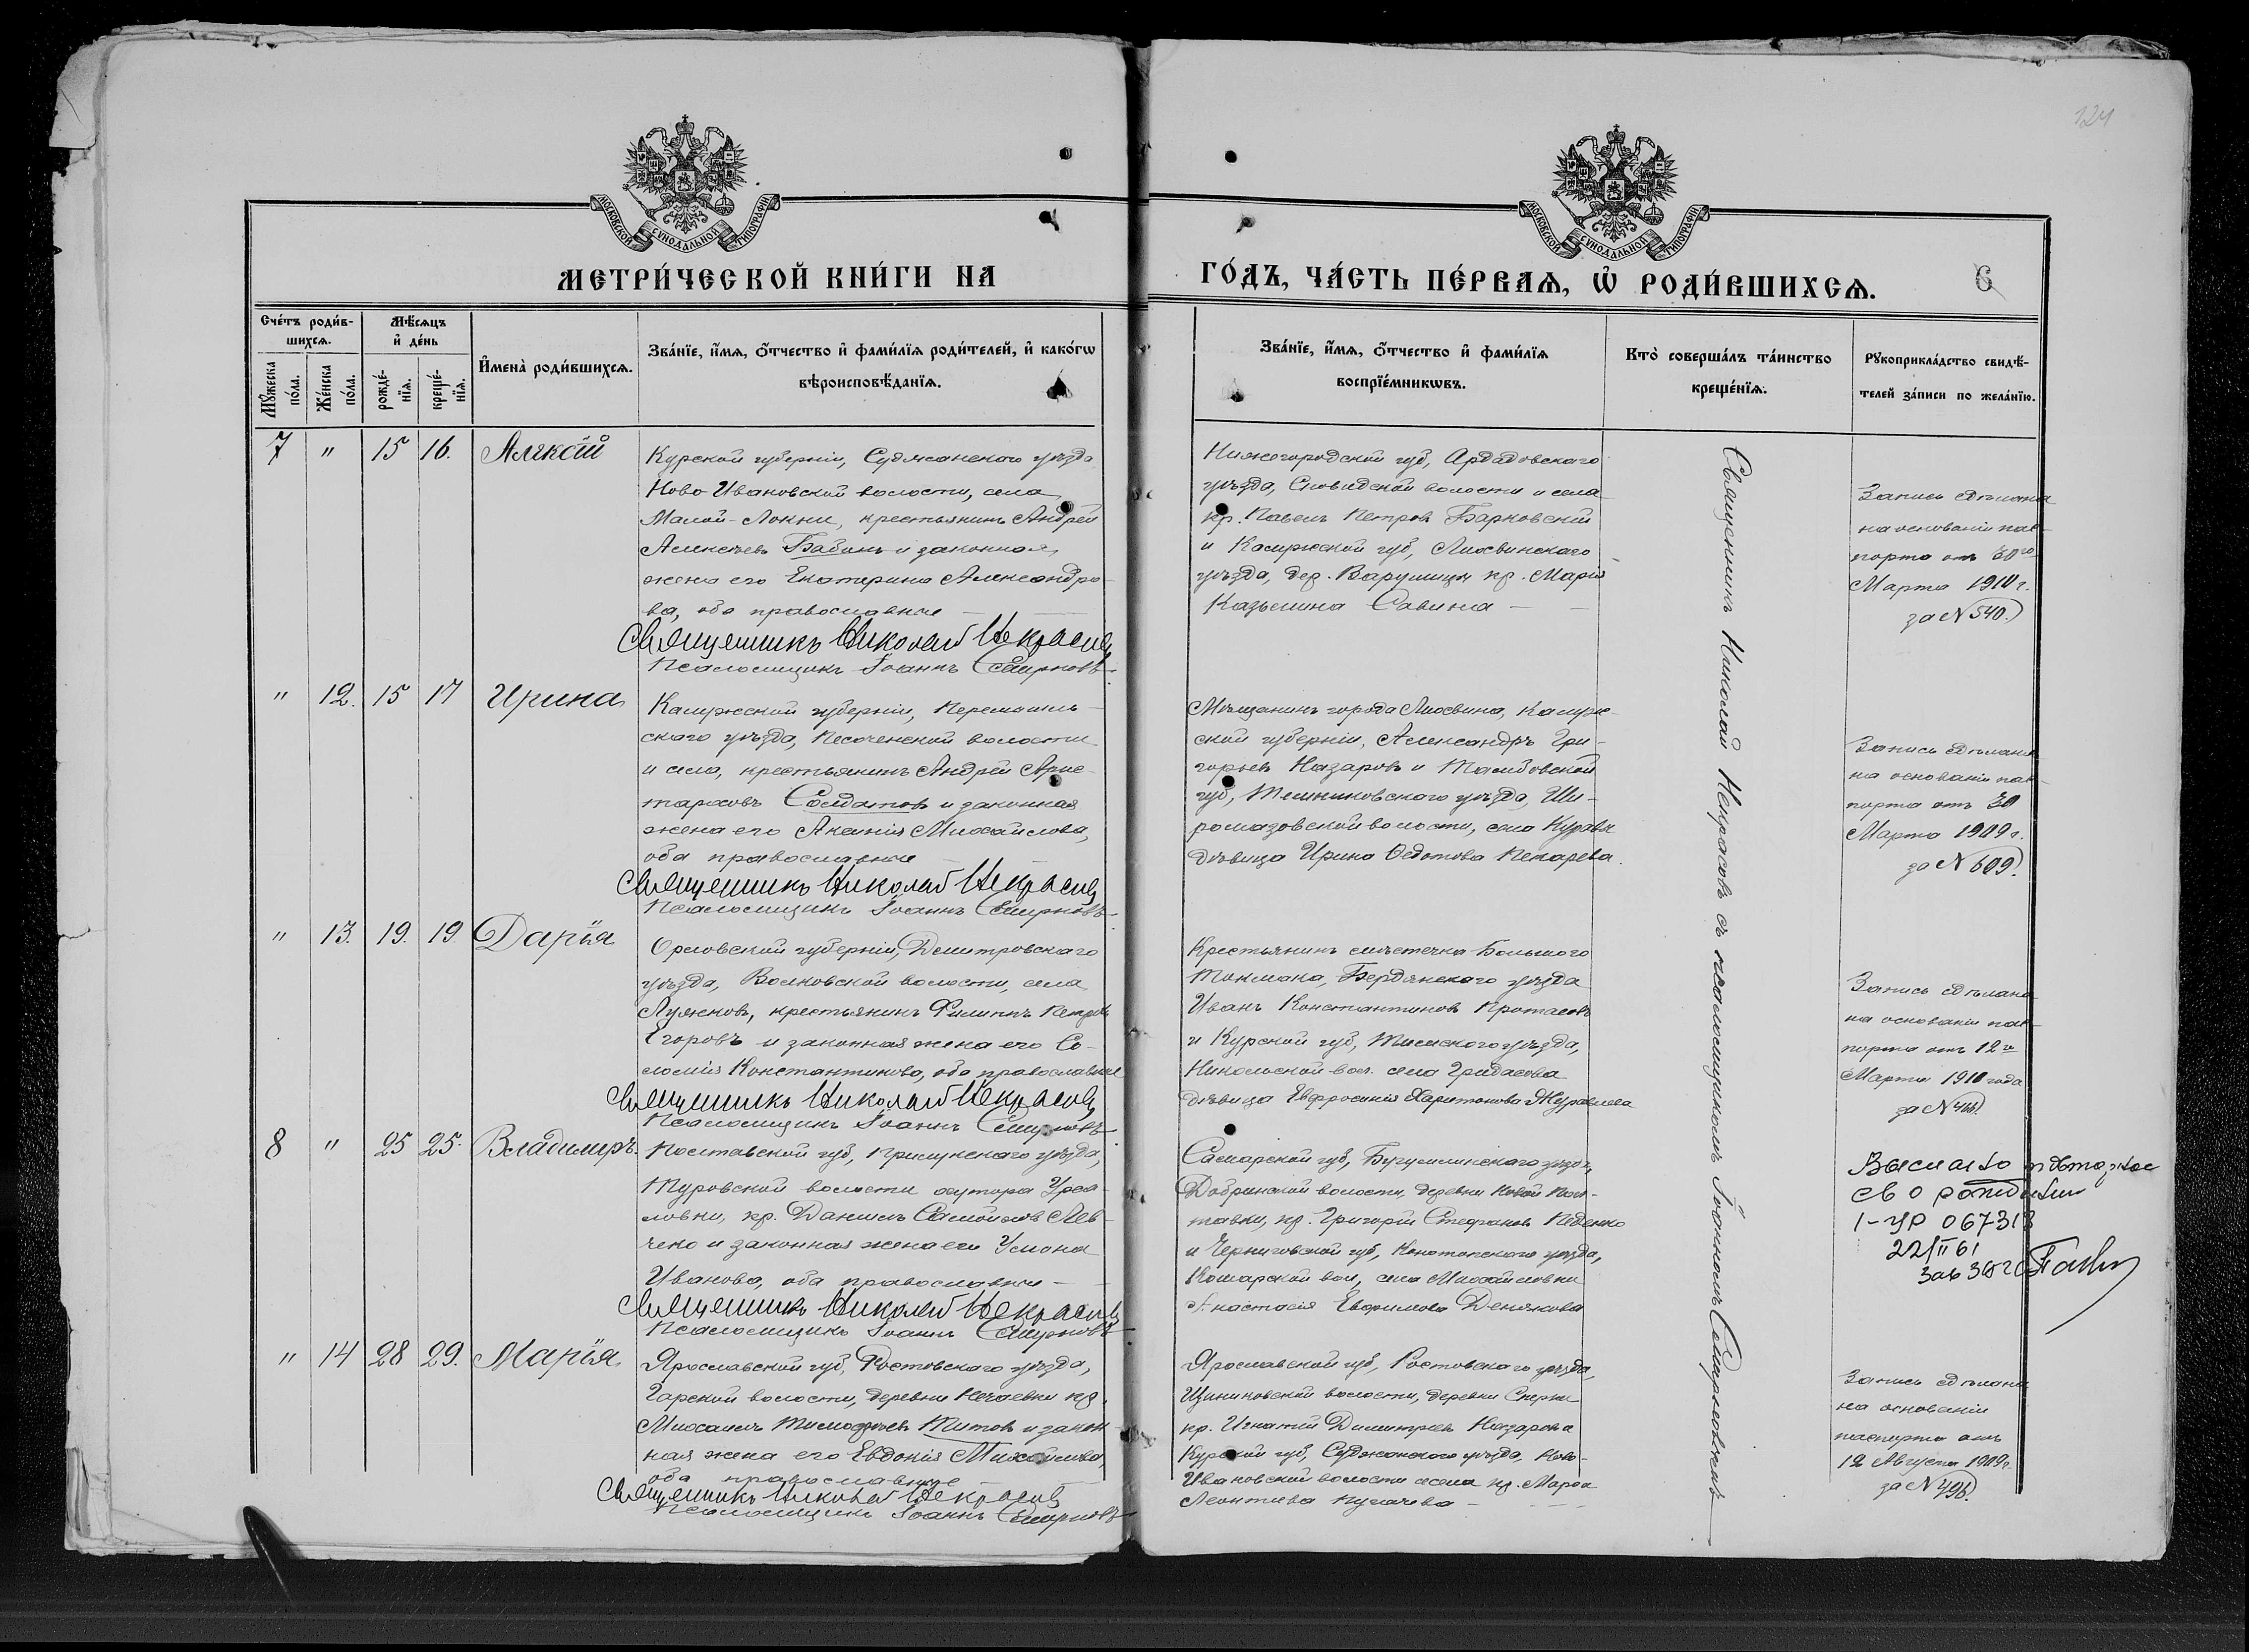 124
МОСКОВСКОЙ СѴНОДАЛЬНОЙ ТИПОГРАФІИ
МОСКОВСКОЙ СѴНОДАЛЬНОЙ ТИПОГРАФІИ
МЕТРИ́ЧЕСКОЙ КНИ́ГИ НА
ГО́ДЪ, ЧА́СТЬ ПЕ́РВАѦ, Ѿ РОДИ́ВШИХСѦ.
6
Сче́тъ роди́в-
шихсѧ.
Мѣ́сѧцъ
и҆ де́нь
Мꙋ́жеска
по́ла.
Же́нска
по́ла.
рожде́-
нїѧ.
креще́-
нїѧ.
И҆мена̀ роди́вшихсѧ.
Зва́нїе, и҆́мѧ, ѻ҆́тчество и҆ фами́лїѧ роди́телей, и҆ како́гѡ
вѣроисповѣ́данїѧ.
Зва́нїе, и҆́мѧ, ѻ҆́тчество и҆ фами́лїѧ
воспрїе́мникѡвъ.
Кто̀ соверша́лъ та́инство
креще́нїѧ.
Рꙋкоприкла́дство свидѣ́-
телей за́писи по жела́нїю.
7 " 15 16. Алексѣй
Курской губерніи, Суджанскаго уѣзда
Ново-Ивановской волости, села
Малой-Локни, крестьянинъ Андрей
Алексѣевъ Бабинъ и законная
жена его Екатерина Александро-
ва, оба православные
Священникъ Николай Некрасовъ
Псаломщикъ Іоаннъ Смирновъ.
Нижегородской губ, Ардадовскаго
уѣзда, волости и села
кр. Павелъ Петровъ Барковскій
и Калужской губ, Лихвинскаго
уѣзда, дер. Варушицы кр. Марія
Казьмина Савина
Запись сдѣлана
на основаніи пас-
порта отъ 30го
Марта 1910 г.
за N 540.
" 12. 15 17 Ирина
Калужской губерніи, Перемышль-
скаго уѣзда, Песоченской волости
и села, крестьянинъ Андрей Арис-
тарховъ Солдатовъ и законная
жена его Аксинія Михайлова,
оба православные
Священникъ Николай Некрасовъ
Псаломщикъ Іоаннъ Смирновъ.
Мѣщанинъ города Лихвина, Калуж-
ской губерніи, Александръ Гри-
горьевъ Назаровъ и Тамбовской
губ, Темниковскаго уѣзда, Ши-
ромазовской волости, села
дѣвица Ирина Ѳедотова Пекарева.
Запись сдѣлана
на основаніи пас-
порта отъ 30
Марта 1909 г.
за N 609.
" 13. 19. 19 Дарія
Орловской губерніи, Дмитровскаго
уѣзда, Волковской волости, села
Лужковъ, крестьянинъ Филиппъ Петровъ
Егоровъ и законная жена его Со-
ломія Константинова, оба православные
Священникъ Николай Некрасовъ
Псаломщикъ Іоаннъ Смирновъ
Крестьянинъ мѣстечка Большого
Токмака, Бердянскаго уѣзда
Иванъ Константиновъ Протасовъ
и Курской губ, Тимскаго уѣзда,
Никольской вол. села Гридасова
дѣвица Евфросинія Харитонова Журавлева
Запись сдѣлана
на основаніи пас-
порта отъ 12го
Марта 1910 года
за N 416.
8 " 25 25. Владимиръ.
Полтавской губ, Прилукскаго уѣзда,
Туровской волости хутора
ловки, кр. Даніилъ Самойловъ Лев-
ченко и законная жена его
Иванова, оба православные
Священникъ Николай Некрасовъ
Псаломщикъ Іоаннъ Смирновъ
Самарской губ, Бугульминскаго уѣзда,
Добринской волости, деревни Новой Пол-
тавки, кр. Григорій Стефановъ
и Черниговской губ, Конотопскаго уѣзда,
вол, села Михайловки
Анастасія Евфимова Денякова
Выслано повторное
св о рождении
1-УР 067313
22/II 61
Зав
" 14 28 29. Марія
Ярославской губ, Ростовскаго уѣзда,
Гарской волости, деревни Нечаевки кр.
Михаилъ Тимофеевъ Титовъ и закон-
ная жена его Евдокія Михайлова,
оба православные
Священникъ Николай Некрасовъ
Псаломщикъ Іоаннъ Смирновъ
Ярославской губ, Ростовскаго уѣзда,
волости, деревни
кр. Игнатій Димитріевъ Назаровъ и
Курской губ, Суджанскаго уѣзда, Ново-
Ивановской волости и села кр. Марѳа
Леонтіева
Запись сдѣлана
на основаніи
паспорта отъ
12 Августа 1909 г.
за N 496.
Священникъ Николай Некрасовъ съ псаломщикомъ Іоанномъ Смирновымъ